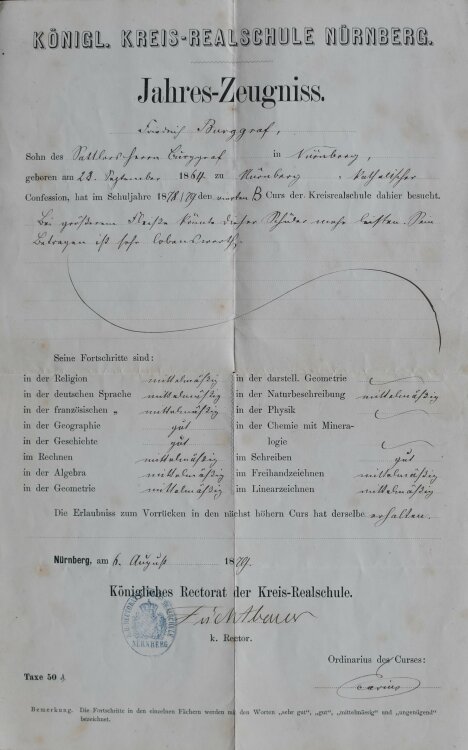 KÖNIGL. KREIS-REALSCHULE NÜRNBERG.
Jahres-Zeugniss.
Friedrich Burggraf,
Sohn des Sattlers Herrn Burggraf in Nürnberg,
geboren am 23. September 1864 zu Nürnberg, katholischer
Confession, hat im Schuljahre 1878/79 den vierten B Curs der Kreisrealschule dahier besucht.
Bei größerem Fleiße könnte dieser Schüler mehr leisten. Sein
Betragen ist sehr lobenswerth.
Seine Fortschritte sind:
in der Religion mittelmäßig
in der deutschen Sprache mittelmäßig
in der französischen „ mittelmäßig
in der Geographie gut
in der Geschichte gut
im Rechnen mittelmäßig
in der Algebra mittelmäßig
in der Geometrie mittelmäßig
in der darstell. Geometrie
in der Naturbeschreibung mittelmäßig
in der Physik
in der Chemie mit Minera-
logie
im Schreiben gut
im Freihandzeichnen mittelmäßig
im Linearzeichnen mittelmäßig
Die Erlaubniss zum Vorrücken in den nächst höhern Curs hat derselbe erhalten.
Nürnberg, am 6. August 1879.
Königliches Rectorat der Kreis-Realschule.
Füchtbauer
k. Rector.
NÜRNBERG
Ordinarius des Curses:
Taxe 50 ₰
Bemerkung. Die Fortschritte in den einzelnen Fächern werden mit den Worten „sehr gut", „gut", „mittelmässig" und „ungenügend"
bezeichnet.